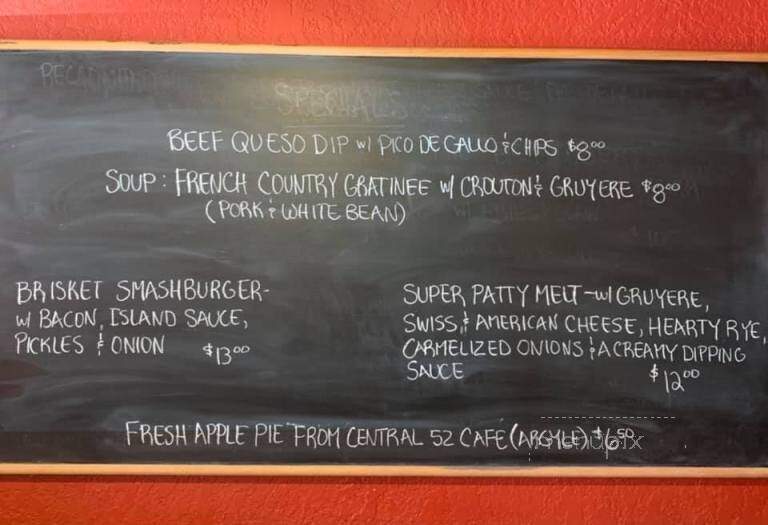 SPECIALS
BEEF QUESO DIP w/ PICO DE GALLO & CHIPS $8.00
SOUP: FRENCH COUNTRY GRATINEE w/ CROUTON & GRUYERE $8.00
(PORK & WHITE BEAN)
BRISKET SMASHBURGER-
w/ BACON, ISLAND SAUCE,
PICKLES & ONION $13.00
SUPER PATTY MELT - w/ GRUYERE,
SWISS, & AMERICAN CHEESE, HEARTY RYE,
CARMELIZED ONIONS & A CREAMY DIPPING
SAUCE $12.00
FRESH APPLE PIE FROM CENTRAL 52 CAFE (ARGYLE) $6.50
menupix